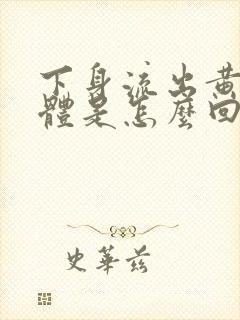 下身流出黄
體是怎麼回
史華茲